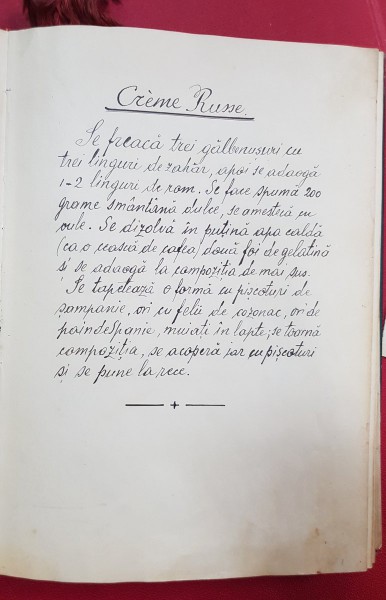 Crème Russe.
Se freacă trei gălbenușuri cu
trei linguri de zahăr, apoi se adaogă
1-2 linguri de rom. Se face spumă 200
grame smântână dulce, se amestecă cu
oule. Se dizolvă în puțină apa caldă
(ca o ceasca de cafea) două foi de gelatină
și se adaogă la compoziția de mai sus.
Se tapetează o formă cu pișcoturi de
șampanie, ori cu felii de cozonac, ori de
paindespanie, muiați în lapte; se toarnă
compoziția, se acoperă iar cu pișcoturi
și se pune la rece.